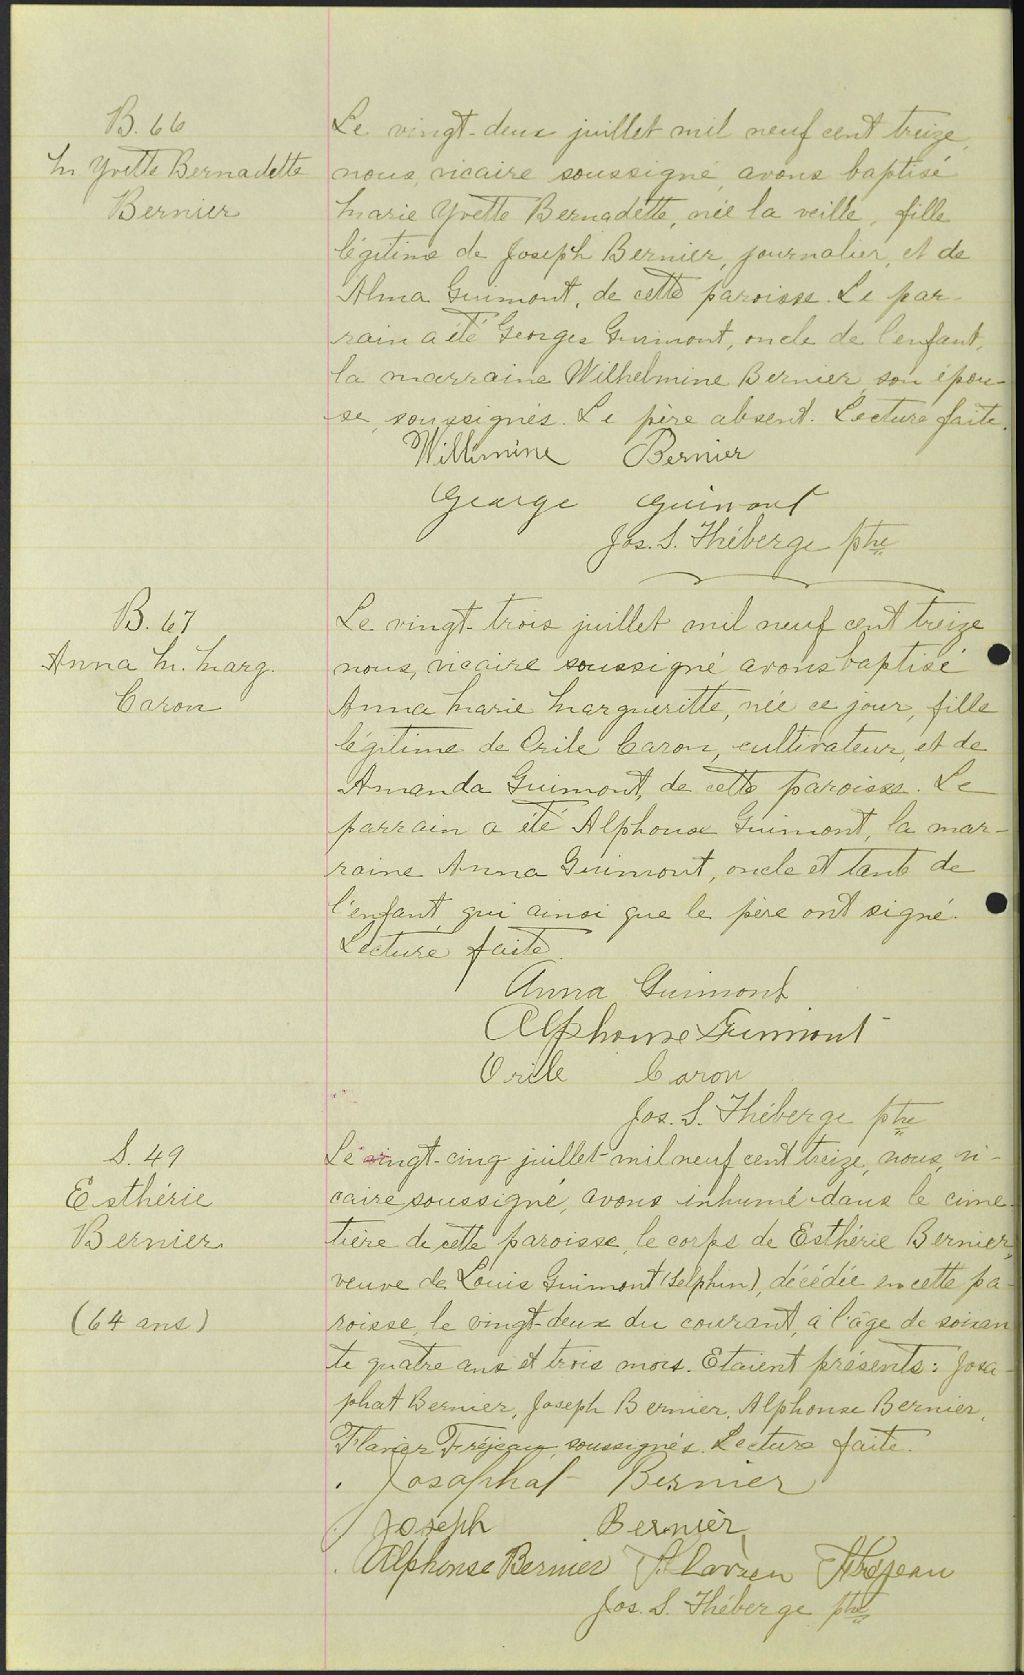 B. 66
M Yvette Bernadette
Bernier
Le vingt-deux juillet mil neuf cent treize,
nous, vicaire soussigné, avons baptisé
Marie Yvette Bernadette, née la veille, fille
légitime de Joseph Bernier, journalier, et de
Alma Guimont, de cette paroisse. Le par-
rain a été Georges Guimont, oncle de l'enfant,
la marraine Wilhelmine Bernier, son épou-
se, soussignés. Le père absent. Lecture faite.
Willimine Bernier
George Guimont
Jos. S. Théberge ptre
B. 67
Anna M. Marg.
Caron
Le vingt-trois juillet mil neuf cent treize
nous, vicaire soussigné avons baptisé
Anna Marie Margueritte, née ce jour, fille
légitime de Ovile Caron, cultivateur, et de
Amanda Guimont, de cette paroisse. Le
parrain a été Alphonse Guimont, la mar-
raine Anna Guimont, oncle et tante de
l'enfant, qui ainsi que le père ont signé.
Lecture faite.
Anna Guimont
Alphonse Guimont
Ovile Caron
Jos. S. Théberge ptre
S. 49
Esthérie
Bernier
(64 ans)
Le vingt-cinq juillet mil neuf cent treize, nous, vi-
caire soussigné, avons inhumé dans le cime-
tière de cette paroisse, le corps de Esthérie Bernier,
veuve de Louis Guimont (Delphin), décédée en cette pa-
roisse, le vingt-deux du courant, à l'âge de soixan
te quatre ans et trois mois. Etaient présents: Josa-
phat Bernier, Joseph Bernier, Alphonse Bernier,
Flavien Fréjeau, soussignés. Lecture faite.
Josaphat Bernier
Joseph Bernier
Alphonse Bernier Flavien Fréjeau
Jos. S. Théberge ptre